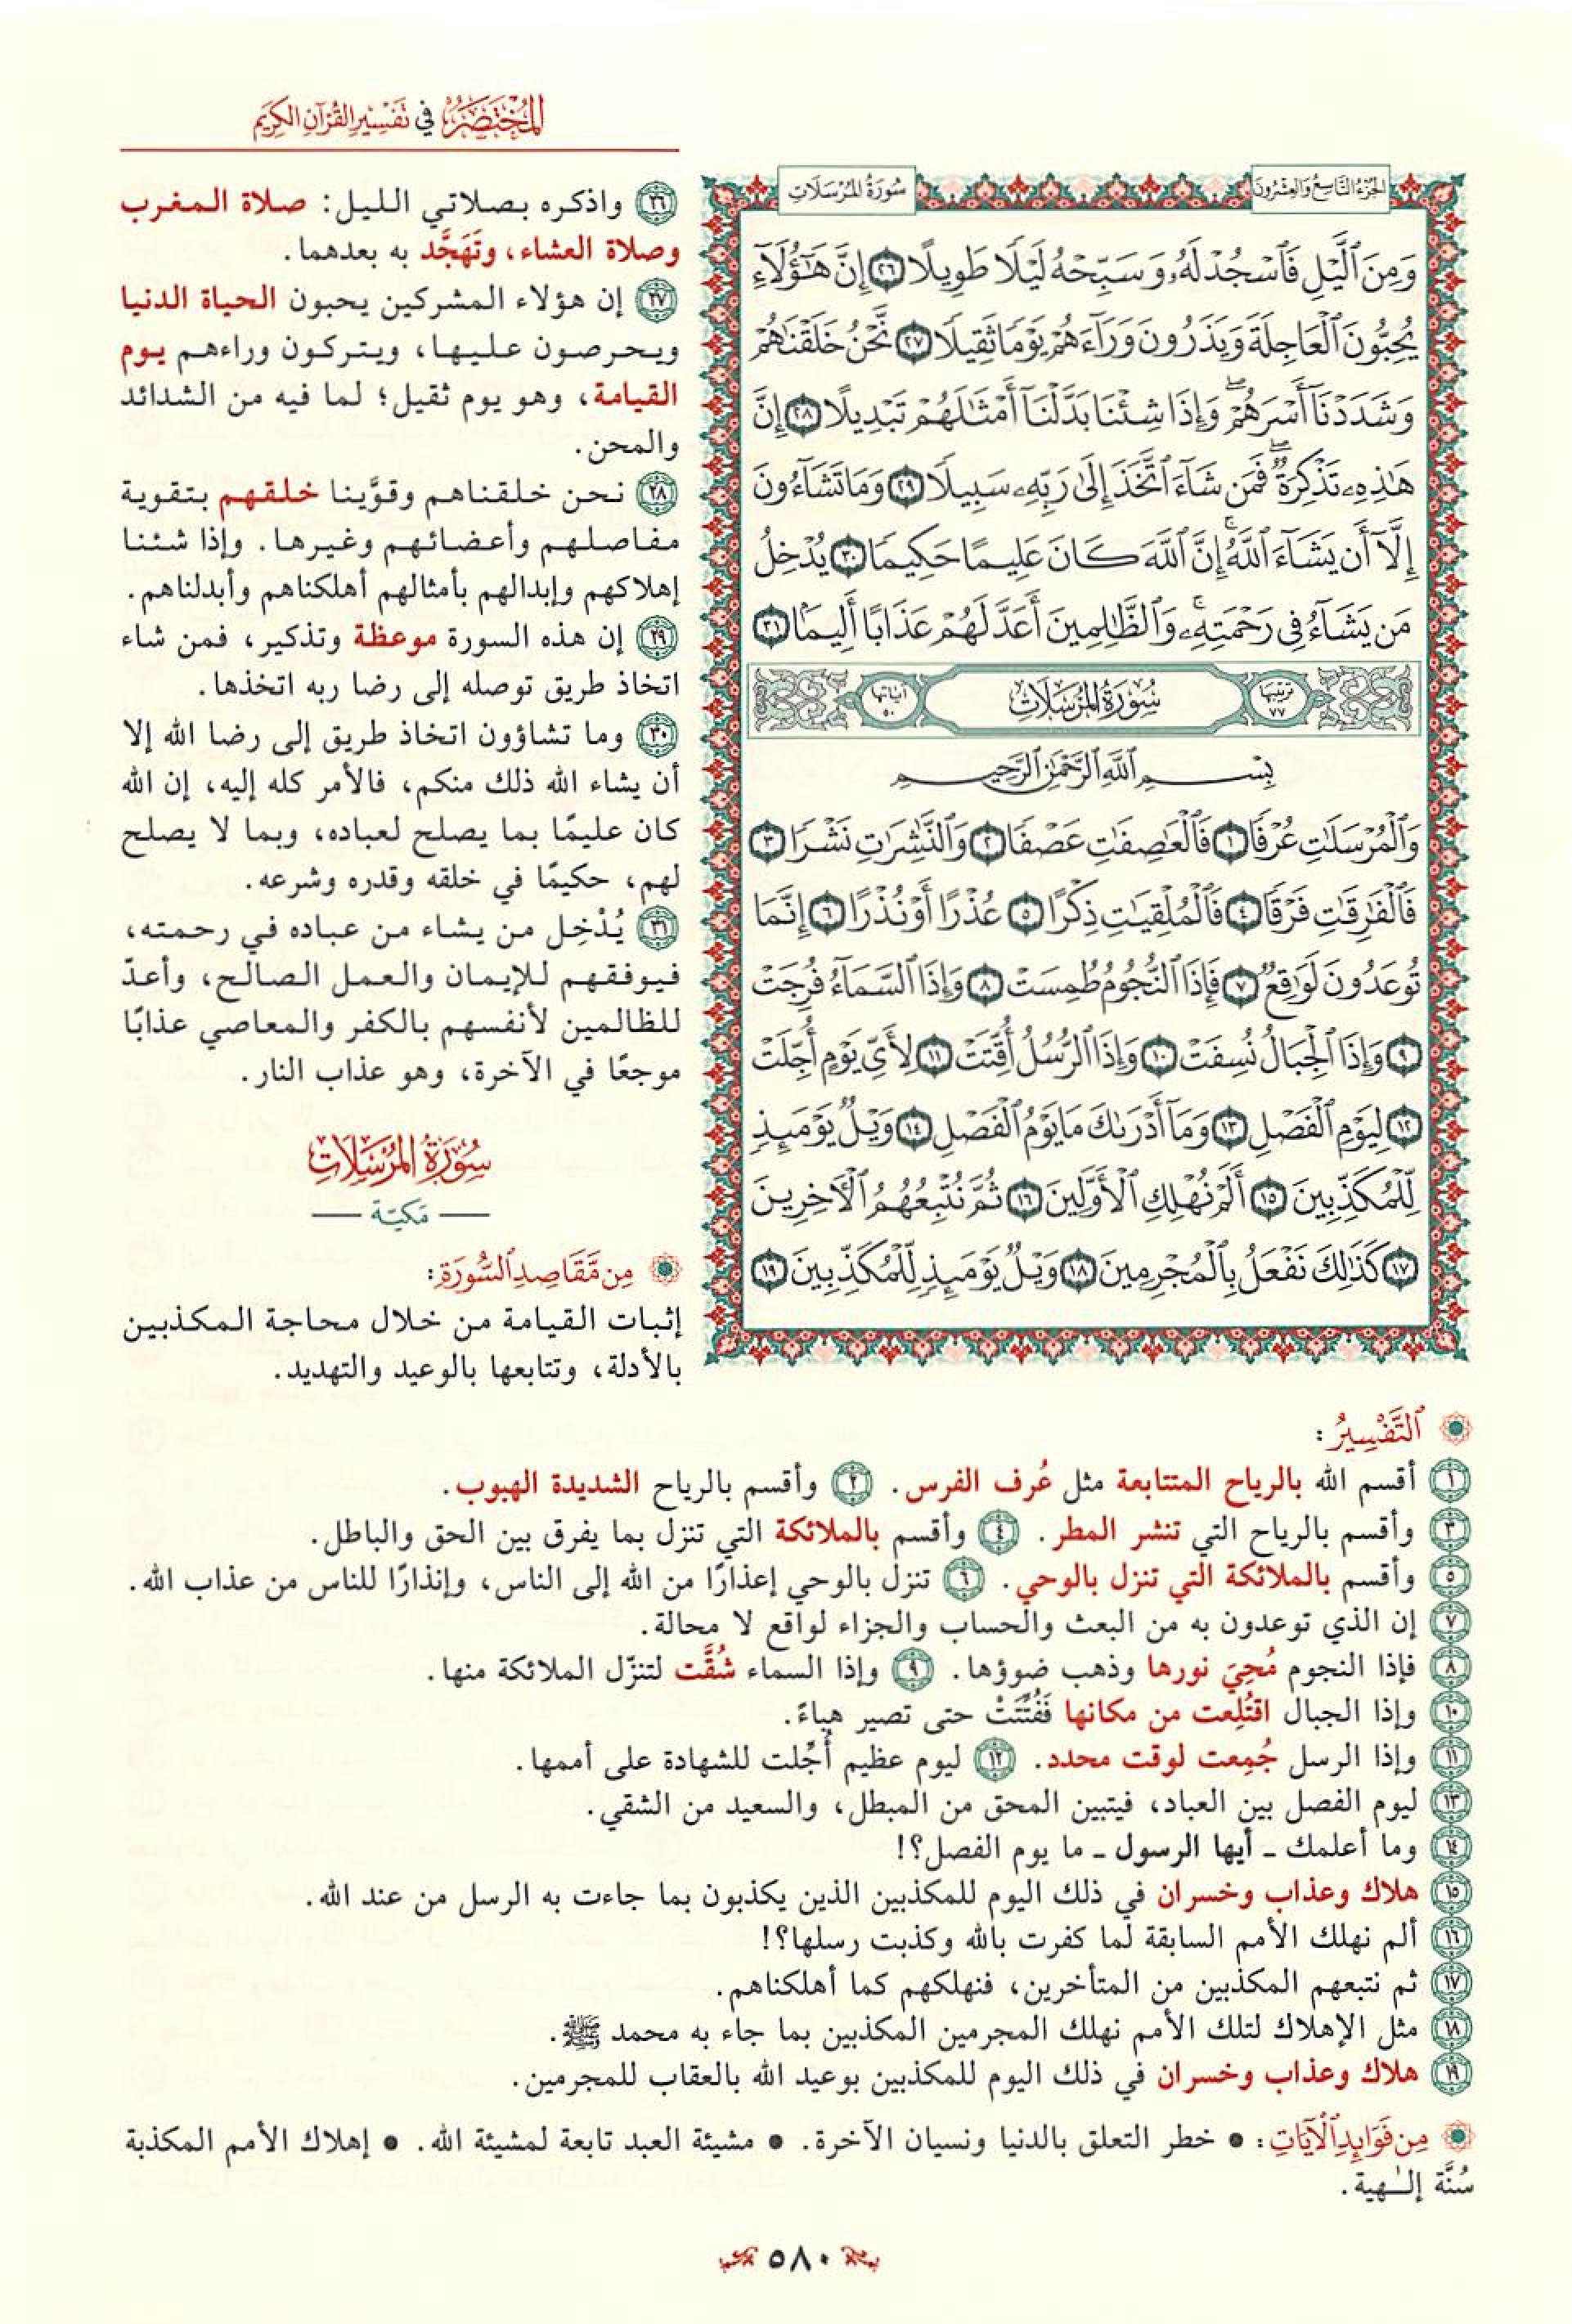 المختصر في تفسير القرآن الكريم
الجزء التاسع والعشرون
سورة المرسلات
وَمِنَ ٱلَّيْلِ فَٱسْجُدْ لَهُۥ وَسَبِّحْهُ لَيْلًا طَوِيلًا ٢٦ إِنَّ هَٰٓؤُلَآءِ
يُحِبُّونَ ٱلْعَاجِلَةَ وَيَذَرُونَ وَرَآءَهُمْ يَوْمًا ثَقِيلًا ٢٧ نَّحْنُ خَلَقْنَٰهُمْ
وَشَدَدْنَآ أَسْرَهُمْ ۖ وَإِذَا شِئْنَا بَدَّلْنَآ أَمْثَٰلَهُمْ تَبْدِيلًا ٢٨ إِنَّ
هَٰذِهِۦ تَذْكِرَةٌ ۖ فَمَن شَآءَ ٱتَّخَذَ إِلَىٰ رَبِّهِۦ سَبِيلًا ٢٩ وَمَا تَشَآءُونَ
إِلَّآ أَن يَشَآءَ ٱللَّهُ ۚ إِنَّ ٱللَّهَ كَانَ عَلِيمًا حَكِيمًا ٣٠ يُدْخِلُ
مَن يَشَآءُ فِى رَحْمَتِهِۦ ۚ وَٱلظَّٰلِمِينَ أَعَدَّ لَهُمْ عَذَابًا أَلِيمًۢا ٣١
ترتيبها ٧٧ سورة المرسلات آياتها ٥٠
بِسْمِ ٱللَّهِ ٱلرَّحْمَٰنِ ٱلرَّحِيمِ
وَٱلْمُرْسَلَٰتِ عُرْفًا ١ فَٱلْعَٰصِفَٰتِ عَصْفًا ٢ وَٱلنَّٰشِرَٰتِ نَشْرًا ٣
فَٱلْفَٰرِقَٰتِ فَرْقًا ٤ فَٱلْمُلْقِيَٰتِ ذِكْرًا ٥ عُذْرًا أَوْ نُذْرًا ٦ إِنَّمَا
تُوعَدُونَ لَوَٰقِعٌ ٧ فَإِذَا ٱلنُّجُومُ طُمِسَتْ ٨ وَإِذَا ٱلسَّمَآءُ فُرِجَتْ
٩ وَإِذَا ٱلْجِبَالُ نُسِفَتْ ١٠ وَإِذَا ٱلرُّسُلُ أُقِّتَتْ ١١ لِأَىِّ يَوْمٍ أُجِّلَتْ
١٢ لِيَوْمِ ٱلْفَصْلِ ١٣ وَمَآ أَدْرَىٰكَ مَا يَوْمُ ٱلْفَصْلِ ١٤ وَيْلٌ يَوْمَئِذٍ
لِّلْمُكَذِّبِينَ ١٥ أَلَمْ نُهْلِكِ ٱلْأَوَّلِينَ ١٦ ثُمَّ نُتْبِعُهُمُ ٱلْـَٔاخِرِينَ
١٧ كَذَٰلِكَ نَفْعَلُ بِٱلْمُجْرِمِينَ ١٨ وَيْلٌ يَوْمَئِذٍ لِّلْمُكَذِّبِينَ ١٩
٢٦ واذكره بصلاتي الليل: صلاة المغرب
وصلاة العشاء، وتَهَجَّد به بعدهما.
٢٧ إن هؤلاء المشركين يحبون الحياة الدنيا
ويحرصون عليها، ويتركون وراءهم يوم
القيامة، وهو يوم ثقيل؛ لما فيه من الشدائد
والمحن.
٢٨ نحن خلقناهم وقوَّينا خلقهم بتقوية
مفاصلهم وأعضائهم وغيرها. وإذا شئنا
إهلاكهم وإبدالهم بأمثالهم أهلكناهم وأبدلناهم.
٢٩ إن هذه السورة موعظة وتذكير، فمن شاء
اتخاذ طريق توصله إلى رضا ربه اتخذها.
٣٠ وما تشاؤون اتخاذ طريق إلى رضا الله إلا
أن يشاء الله ذلك منكم، فالأمر كله إليه، إن الله
كان عليمًا بما يصلح لعباده، وبما لا يصلح
لهم، حكيمًا في خلقه وقدره وشرعه.
٣١ يُدْخِل من يشاء من عباده في رحمته،
فيوفقهم للإيمان والعمل الصالح، وأعدّ
للظالمين لأنفسهم بالكفر والمعاصي عذابًا
موجعًا في الآخرة، وهو عذاب النار.
سورة المرسلات
مكية
من مقاصد السورة:
إثبات القيامة من خلال محاجة المكذبين
بالأدلة، وتتابعها بالوعيد والتهديد.
التفسير:
١ أقسم الله بالرياح المتتابعة مثل عُرف الفرس. ٢ وأقسم بالرياح الشديدة الهبوب.
٣ وأقسم بالرياح التي تنشر المطر. ٤ وأقسم بالملائكة التي تنزل بما يفرق بين الحق والباطل.
٥ وأقسم بالملائكة التي تنزل بالوحي. ٦ تنزل بالوحي إعذارًا من الله إلى الناس، وإنذارًا للناس من عذاب الله.
٧ إن الذي توعدون به من البعث والحساب والجزاء لواقع لا محالة.
٨ فإذا النجوم مُحِيَ نورها وذهب ضوؤها. ٩ وإذا السماء شُقَّت لتنزّل الملائكة منها.
١٠ وإذا الجبال اقتُلِعت من مكانها فَفُتِّتَتْ حتى تصير هباءً.
١١ وإذا الرسل جُمِعت لوقت محدد. ١٢ ليوم عظيم أُجِّلت للشهادة على أممها.
١٣ ليوم الفصل بين العباد، فيتبين المحق من المبطل، والسعيد من الشقي.
١٤ وما أعلمك ـ أيها الرسول ـ ما يوم الفصل؟!
١٥ هلاك وعذاب وخسران في ذلك اليوم للمكذبين الذين يكذبون بما جاءت به الرسل من عند الله.
١٦ ألم نهلك الأمم السابقة لما كفرت بالله وكذبت رسلها؟!
١٧ ثم نتبعهم المكذبين من المتأخرين، فنهلكهم كما أهلكناهم.
١٨ مثل الإهلاك لتلك الأمم نهلك المجرمين المكذبين بما جاء به محمد ﷺ.
١٩ هلاك وعذاب وخسران في ذلك اليوم للمكذبين بوعيد الله بالعقاب للمجرمين.
من فوائد الآيات: • خطر التعلق بالدنيا ونسيان الآخرة. • مشيئة العبد تابعة لمشيئة الله. • إهلاك الأمم المكذبة
سُنَّة إلـٰهية.
٥٨٠